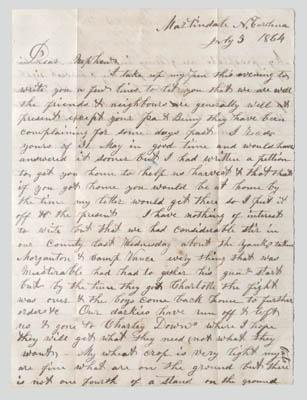 Martindale N. Carolina
July 3 1864
Dear Nephew
I take up my pen this evening to
write you a few lines to let you that we are well
the friends & neighbours are generally well at
present except your
complaining for some days past I
yours of May in good time and would have
answered it sooner but I had written a petition
to get you home to help us harvest & that
if you got home you would be at home by
the time my letter would get there so I put it
off to the present I have nothing of interest
to write but that we had considerable stir in
our County last Wednesday about the Yanks taking
Morganton & Camp Vance every thing that was
had to gether his gun & start
but by the time they got Charlotte the fight
was over & the boys come back home to further
orders Our darkies have run off & left
us & gone to where I hope
they will get what they need (not what they
want) My wheat crop is very light my
are fine what are on the ground but there
is not one fourth of a stand on the ground